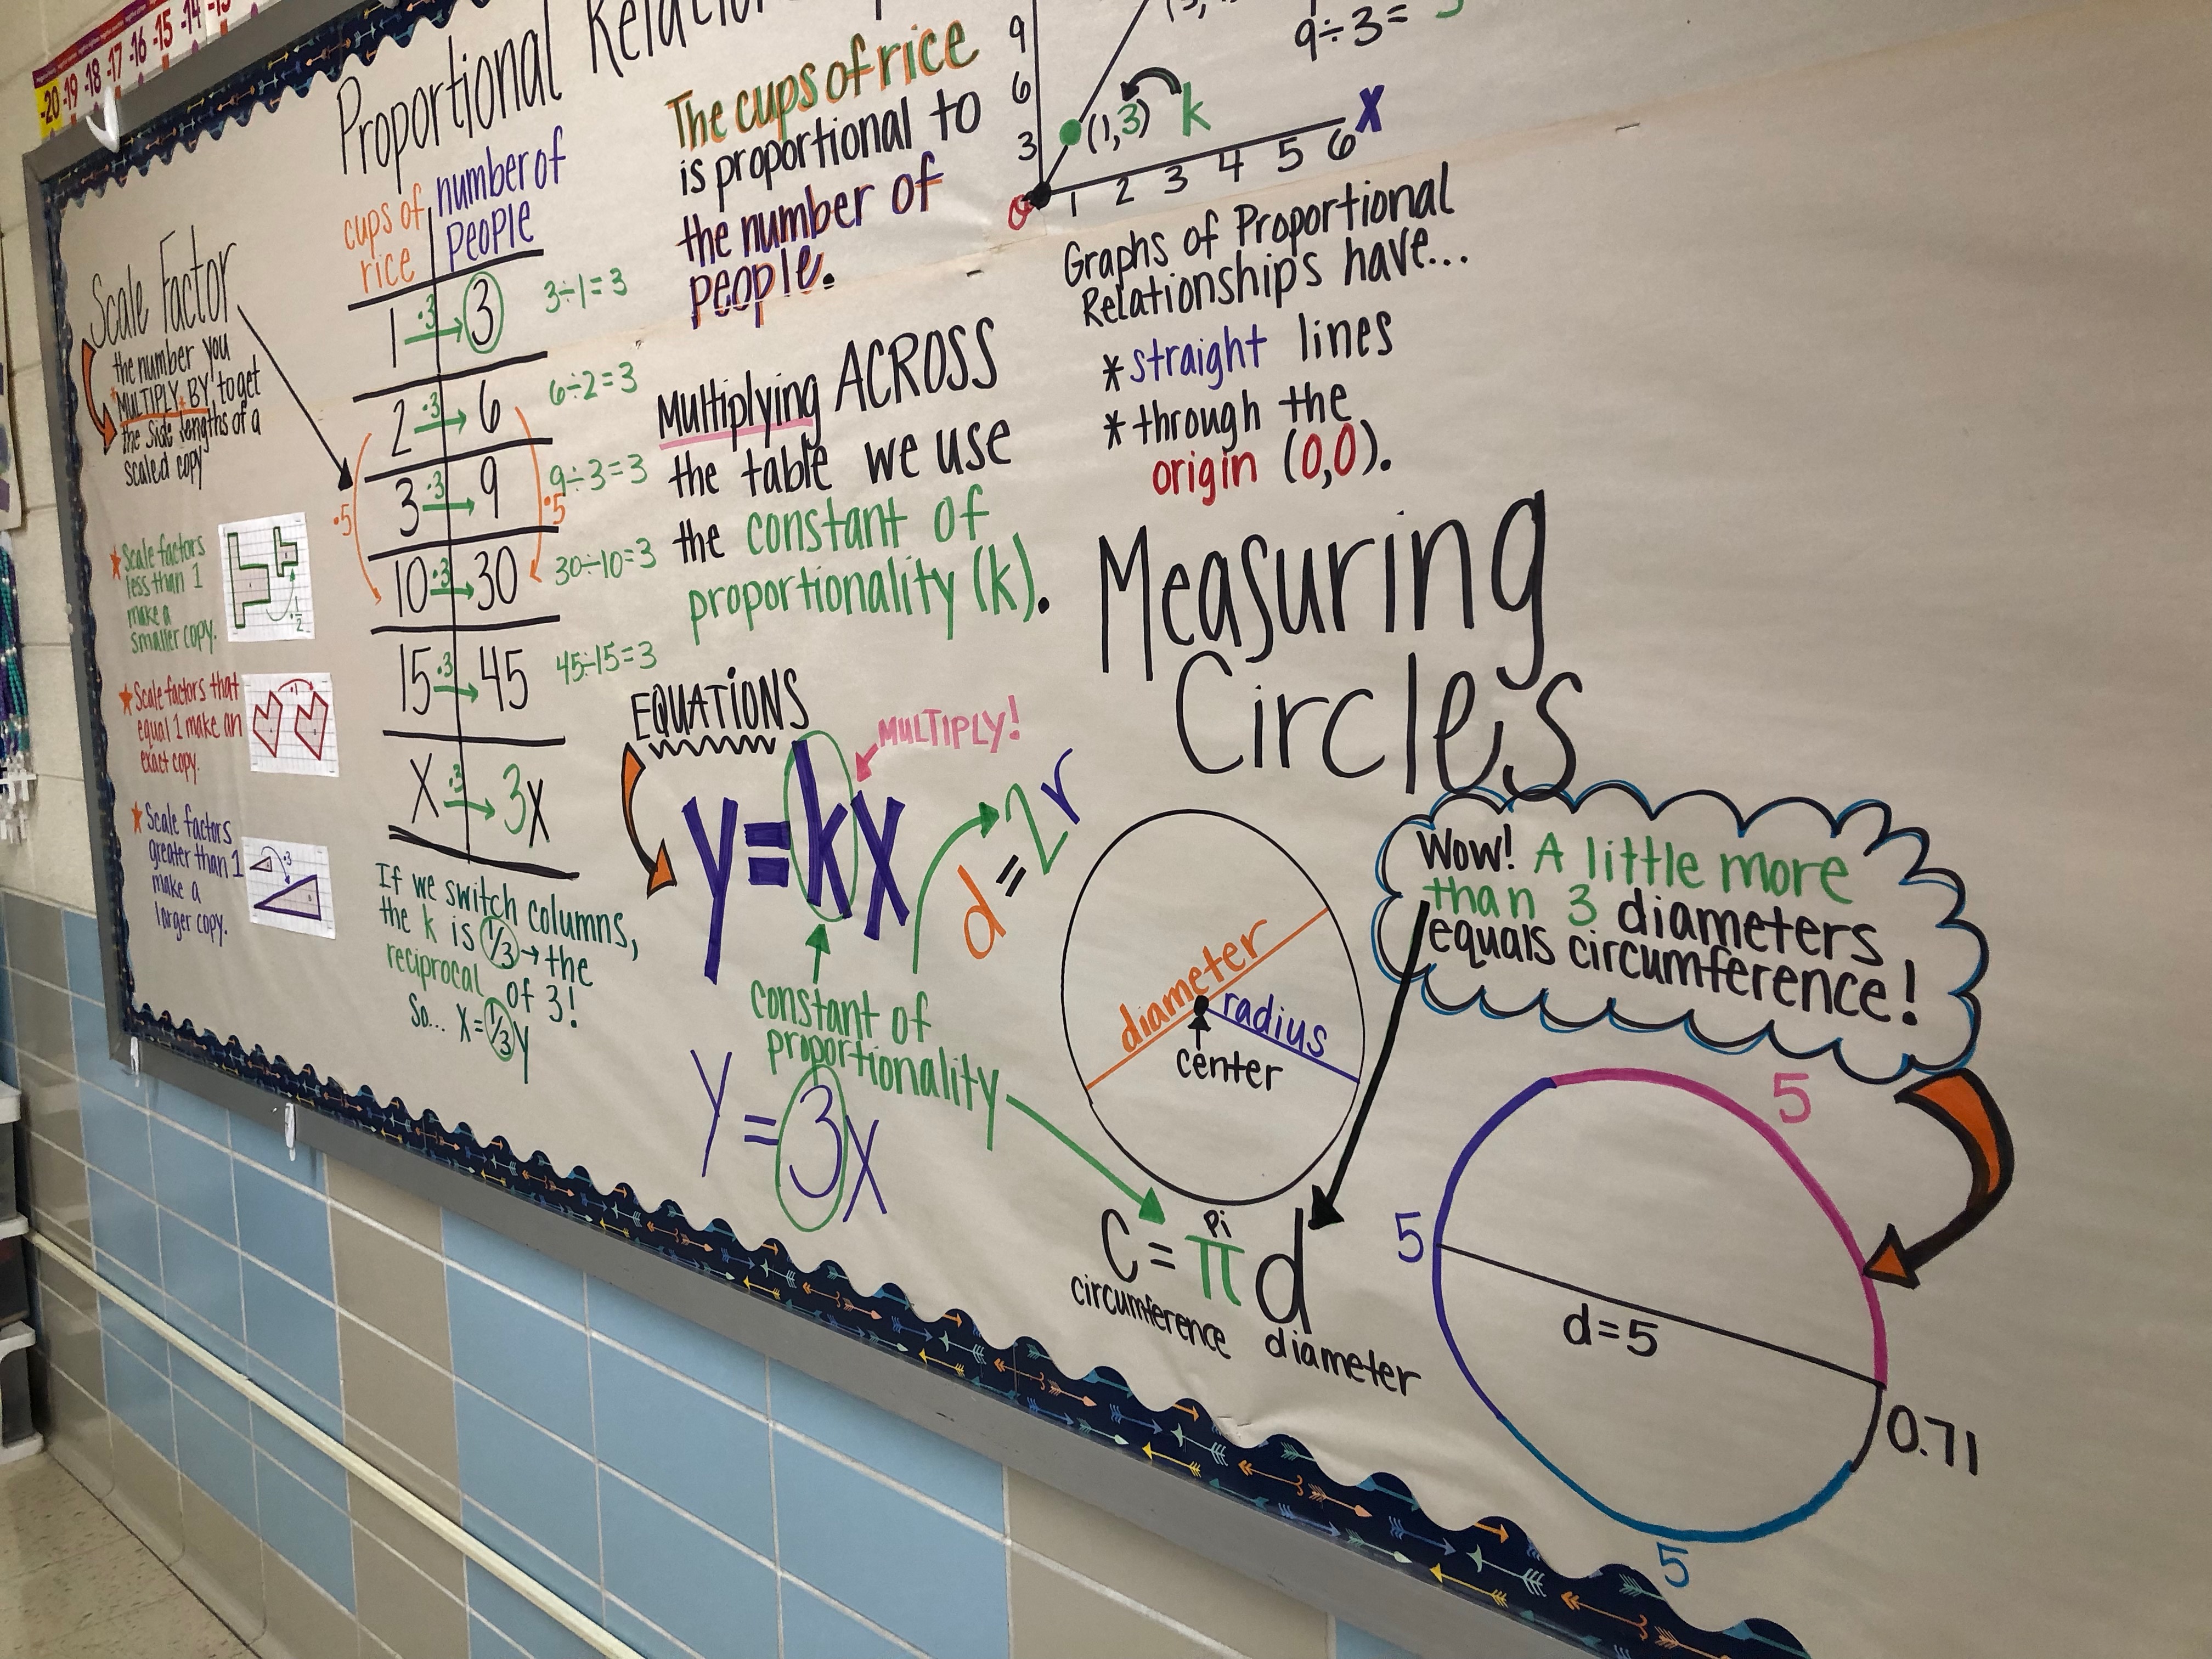 -20 -19 -18 -17 -16 -15 -14
Proportional
Scale Factor
the number you
MULTIPLY BY to get
the side lengths of a
scaled copy
Scale factors
less than 1
make a
smaller copy.
1/2
Scale factors that
equal 1 make an
exact copy.
·1
Scale factors
greater than 1
make a
larger copy.
·3
cups of
rice
number of
people
1 ·3 3 3÷1=3
2 ·3 6 6÷2=3
3 ·3 9 9÷3=3
·5 ·5
10 ·3 30 30÷10=3
15 ·3 45 45÷15=3
x ·3 3x
If we switch columns,
the k is 1/3 → the
reciprocal of 3!
So... x=1/3y
The cups of rice
is proportional to
the number of
people.
Multiplying ACROSS
the table we use
the constant of
proportionality (k).
EQUATIONS
MULTIPLY!
y=kx
constant of
proportionality
y=3x
9÷3=
9
6
3
0
1 2 3 4 5 6 x
(1,3) k
Graphs of Proportional
Relationships have...
*straight lines
*through the
origin (0,0).
Measuring
Circles
d=2r
diameter
radius
center
Wow! A little more
than 3 diameters
equals circumference!
Pi
C=πd
circumference
diameter
5
5
d=5
0.71
5